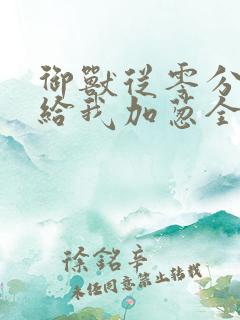 御獸從零分
給我加蔥全
徐銘辛
未经同意禁止转载